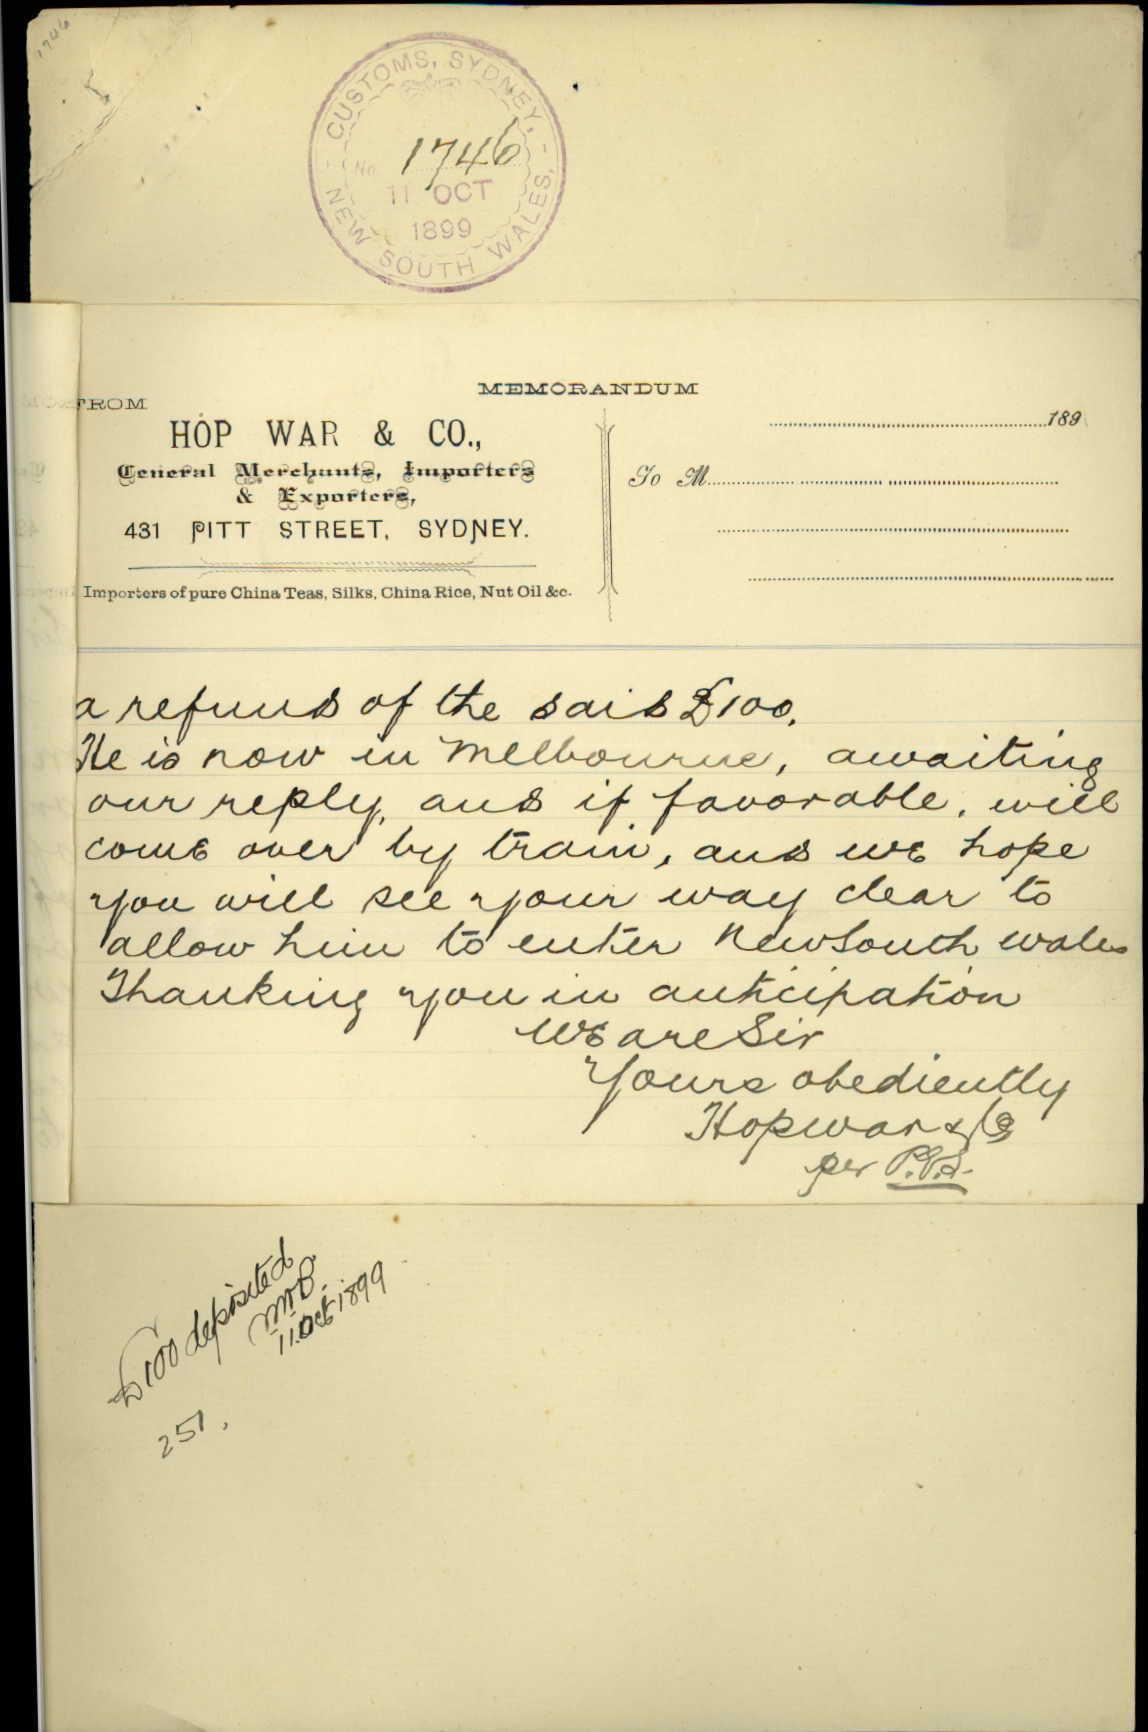 1746
CUSTOMS, SYDNEY,
No. 1746
11 OCT
1899
NEW SOUTH WALES,
MEMORANDUM
FROM
HOP WAR & CO.,
General Merchants, Importers
& Exporters,
431 PITT STREET, SYDNEY.
Importers of pure China Teas, Silks, China Rice, Nut Oil &c.
189
To M
a refund of the said £100.
He is now in Melbourne, awaiting
our reply, and if favorable, will
come over by train, and we hope
you will see your way clear to
allow him to enter New South Wales
Thanking you in anticipation
We are Sir
Yours obediently
Hop war & Co
per
£100 deposited
11 Oct 1899
251.